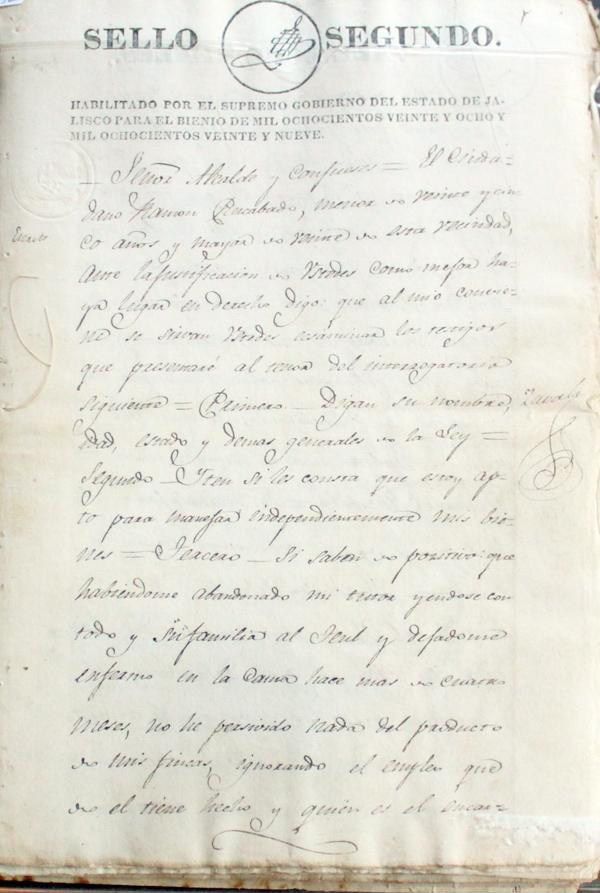 SELLO SEGUNDO.
HABILITADO POR EL SUPREMO GOBIERNO DEL ESTADO DE JA-
LISCO PARA EL BIENIO DE MIL OCHOCIENTOS VEINTE Y OCHO Y
MIL OCHOCIENTOS VEINTE Y NUEVE.
Señor Alcalde y = El Ciuda-
dano Ramon menor de veinte y cin-
Escrito
co años y mayor de veinte de esta vecindad,
ante la justificacion de Vstedes como mejor ha-
ya lugar en derecho digo: que al mio convie-
ne se sirvan Vstedes ecsáminar los testigos
que presentaré al tenor del interrogatorio
siguiente = Primero – Digan su nombre,
Zavala
edad, estado y demas generales de la Ley =
Segundo – Yten si les consta que estoy ap-
to para manejar independientemente mis bie-
nes = Tercero – Si saben de pozitivo que
habiendome abandonado mi tutor yendose con
todo y su familia al Teul y dejadome
enfermo en la Cama hace mas de cuatro
meses, no he persivido nada del producto
de mis fincas, ignorando el empleo que
de el tiene hecho y quien es el encar-